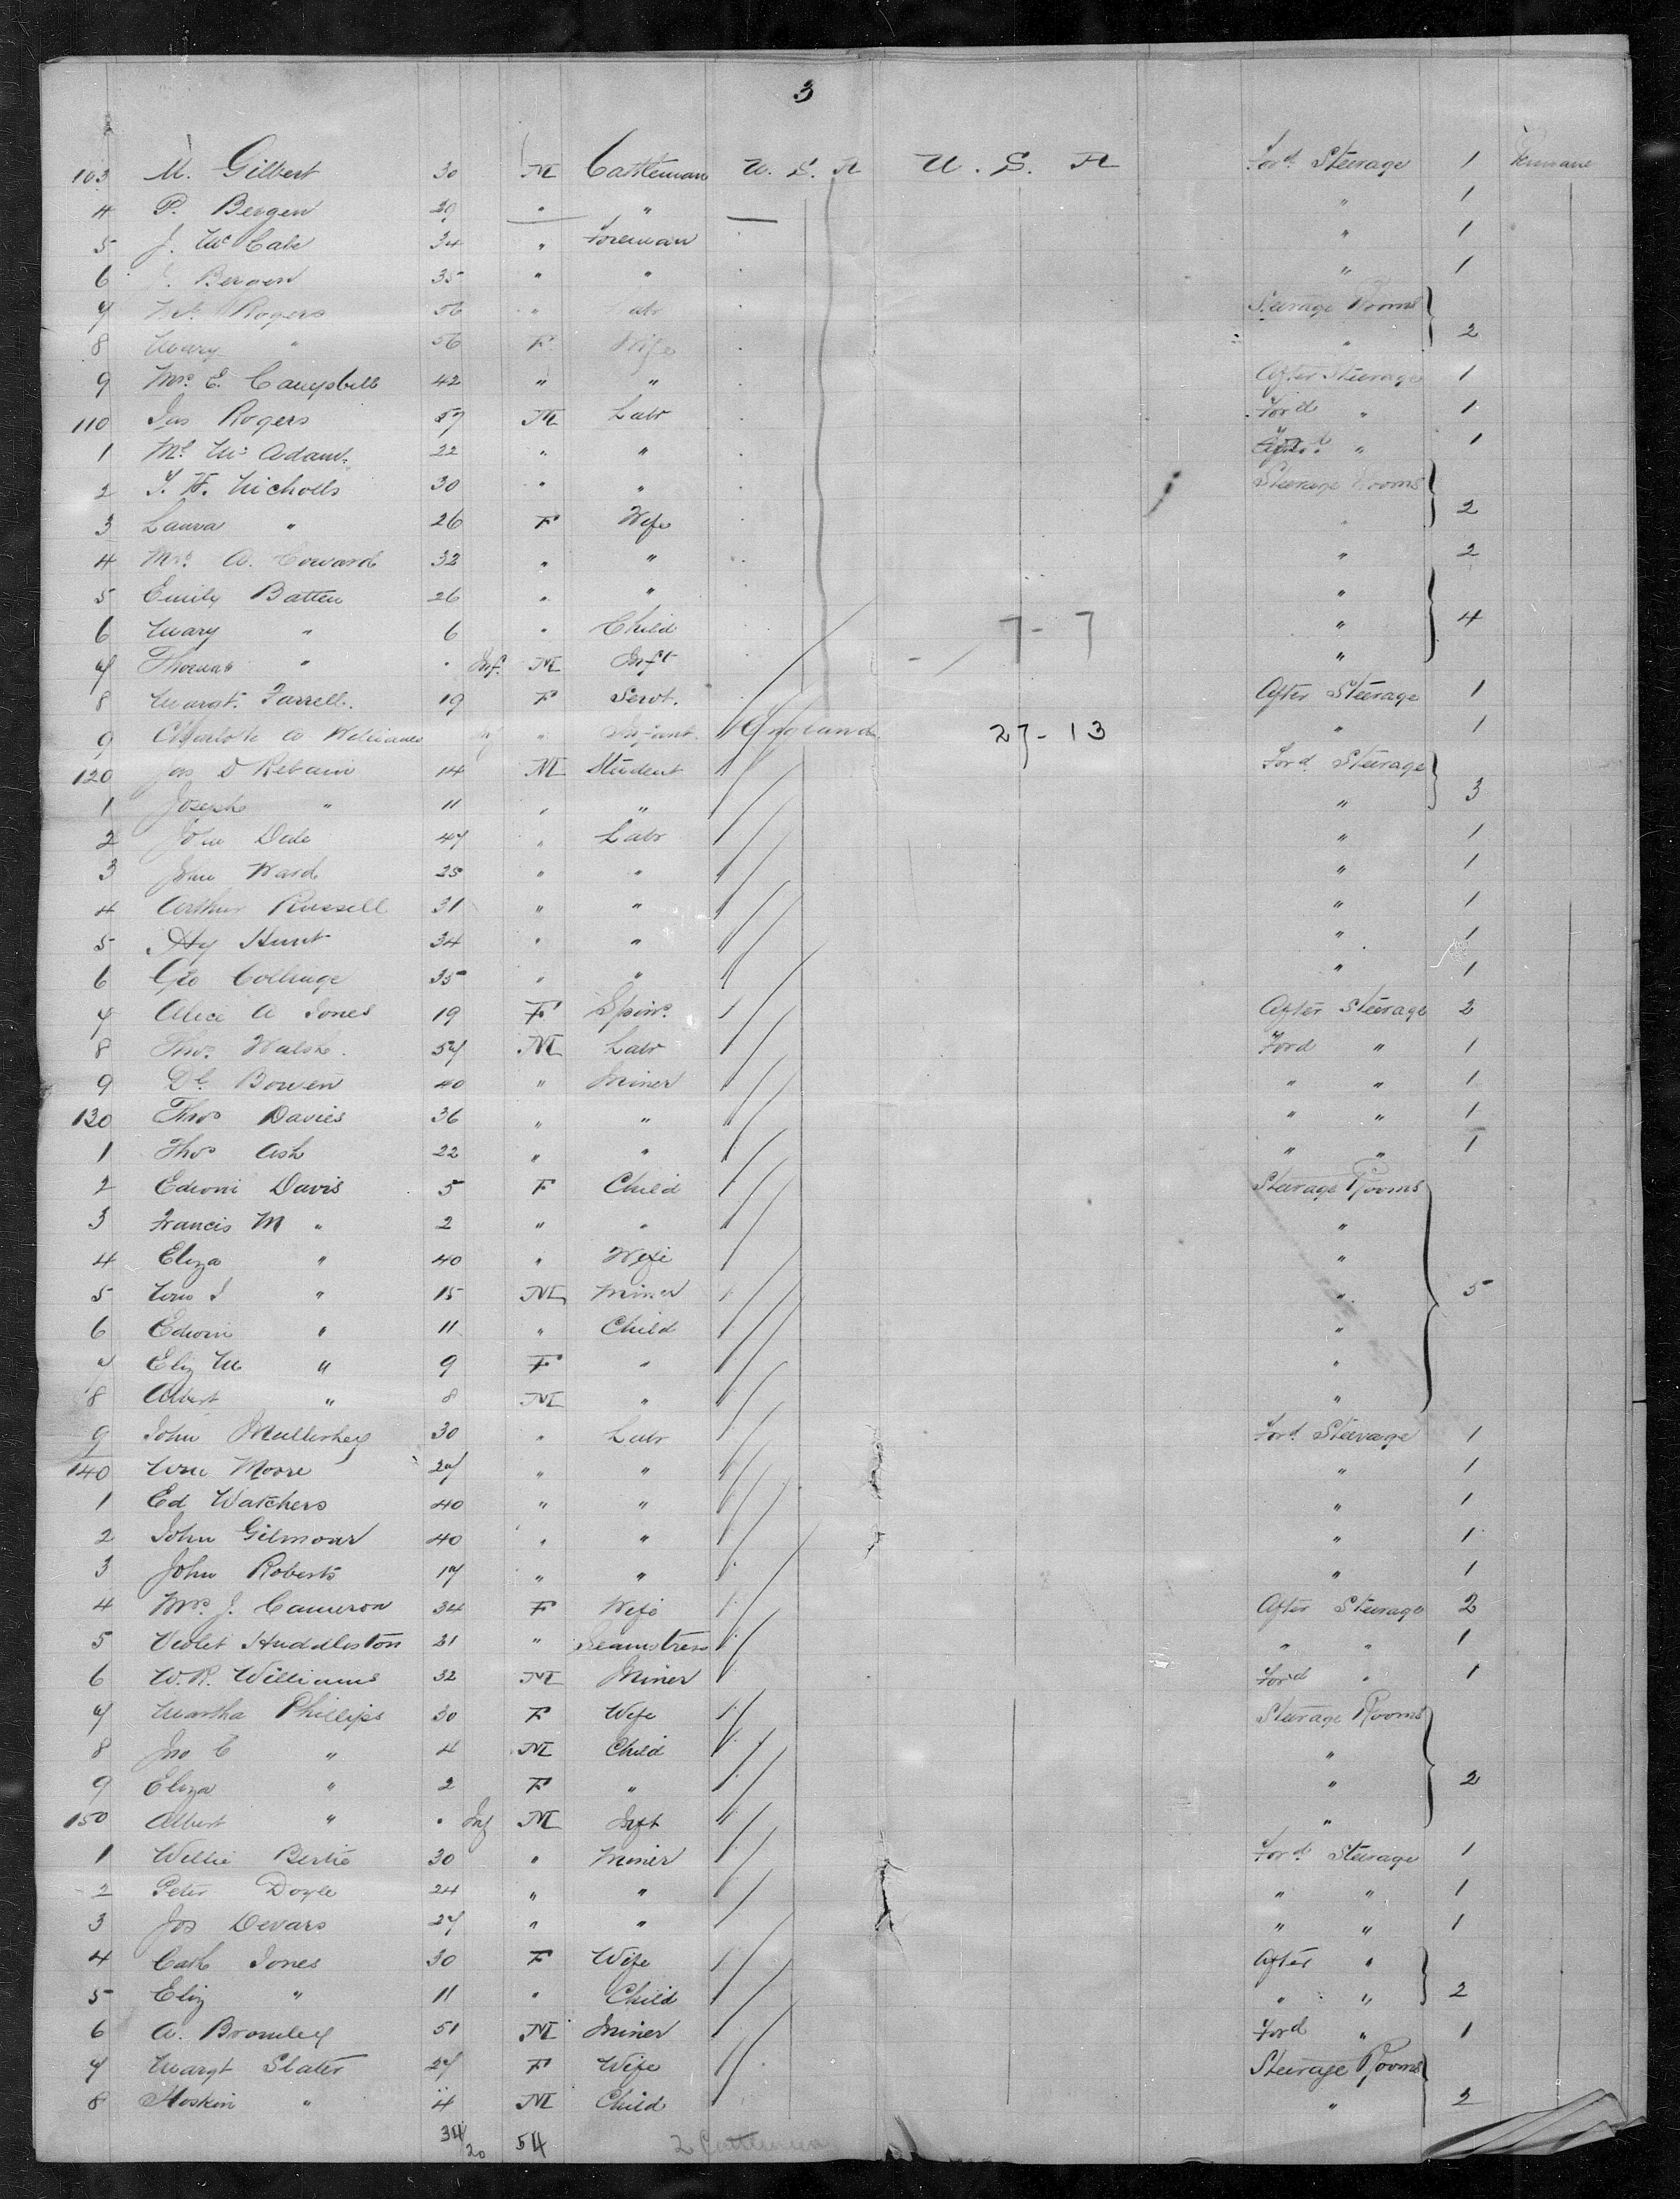 3
103 M. Gilbert 30 M Cattleman U. S. A U. S. A Ford Steerage 1
4 P. Bergen 29 " " " 1
5 J. McCabe 34 " Foreman " 1
6 J. Bergen 35 " " " 1
7 Rogers 56 " Labr Steerage Rooms
8 Mary " 56 F Wife " 2
9 Mrs E. Campbell 42 " " After Steerage 1
110 Jas Rogers 57 M Labr Ford " 1
1 Ml McAdam 22 " " " 1
2 T. H. Nicholls 30 " " Steerage Rooms
3 Laura " 26 F Wife " 2
4 Mrs A. Coward 32 " " " 2
5 Emily Batten 26 " " "
6 Mary " 6 " Child 7 - 7 " 4
7 Thomas " " Inf. M Inft "
8 Margt. Farrell. 19 F Servt. After Steerage 1
9 Charlotte A Williams Inf " Infant England 27 - 13 " 1
120 Jas D Rebain 14 M Student Ford Steerage
1 Joseph " 11 " " " 3
2 John Dede 47 " Labr " 1
3 John Ward 25 " " " 1
4 Arthur Russell 31 " " " 1
5 Hy Hunt 34 " " " 1
6 Geo Collinge 35 " " " 1
7 Alice A Jones 19 F Spinr. After Steerage 2
8 Thos. Walsh. 57 M Labr Ford " 1
9 Dl. Bowen 40 " Miner " " 1
130 Thos Davies 36 " " " " 1
1 Thos Ash 22 " " " " 1
2 Edwoni Davis 5 F Child Steerage Rooms
3 Francis M " 2 " " "
4 Eliza " 40 " Wife "
5 Wm J " 15 M Miner " 5
6 Edwin " 11 " Child "
7 Eliz M " 9 F " "
8 Albert " 8 M " "
9 John Mullerhey 30 " Labr Ford Steerage 1
140 Wm Moore 27 " " " 1
1 Ed Watchers 40 " " " 1
2 John Gilmour 40 " " " 1
3 John Roberts 17 " " " 1
4 Mrs. J. Cameron 34 F Wife After Steerage 2
5 Violet Huddleston 21 " Seamstress " " 1
6 W. R. Williams 32 M Miner Ford " 1
7 Martha Phillips 30 F Wife Steerage Rooms
8 Jno C " 4 M Child "
9 Eliza " 2 F " " 2
150 Albert " " Inf M Inft "
1 Willie Bertie 30 " Miner Ford Steerage 1
2 Peter Doyle 24 " " " " 1
3 Jos Devars 27 " " " " 1
4 Cath Jones 30 F Wife After "
5 Eliz " 11 " Child " " 2
6 A. Bromley 51 M Miner Ford " 1
7 Margt Slater 27 F Wife Steerage Rooms
8 Hoskin " 4 M Child " 2
34/20 54 2 Cattlemen